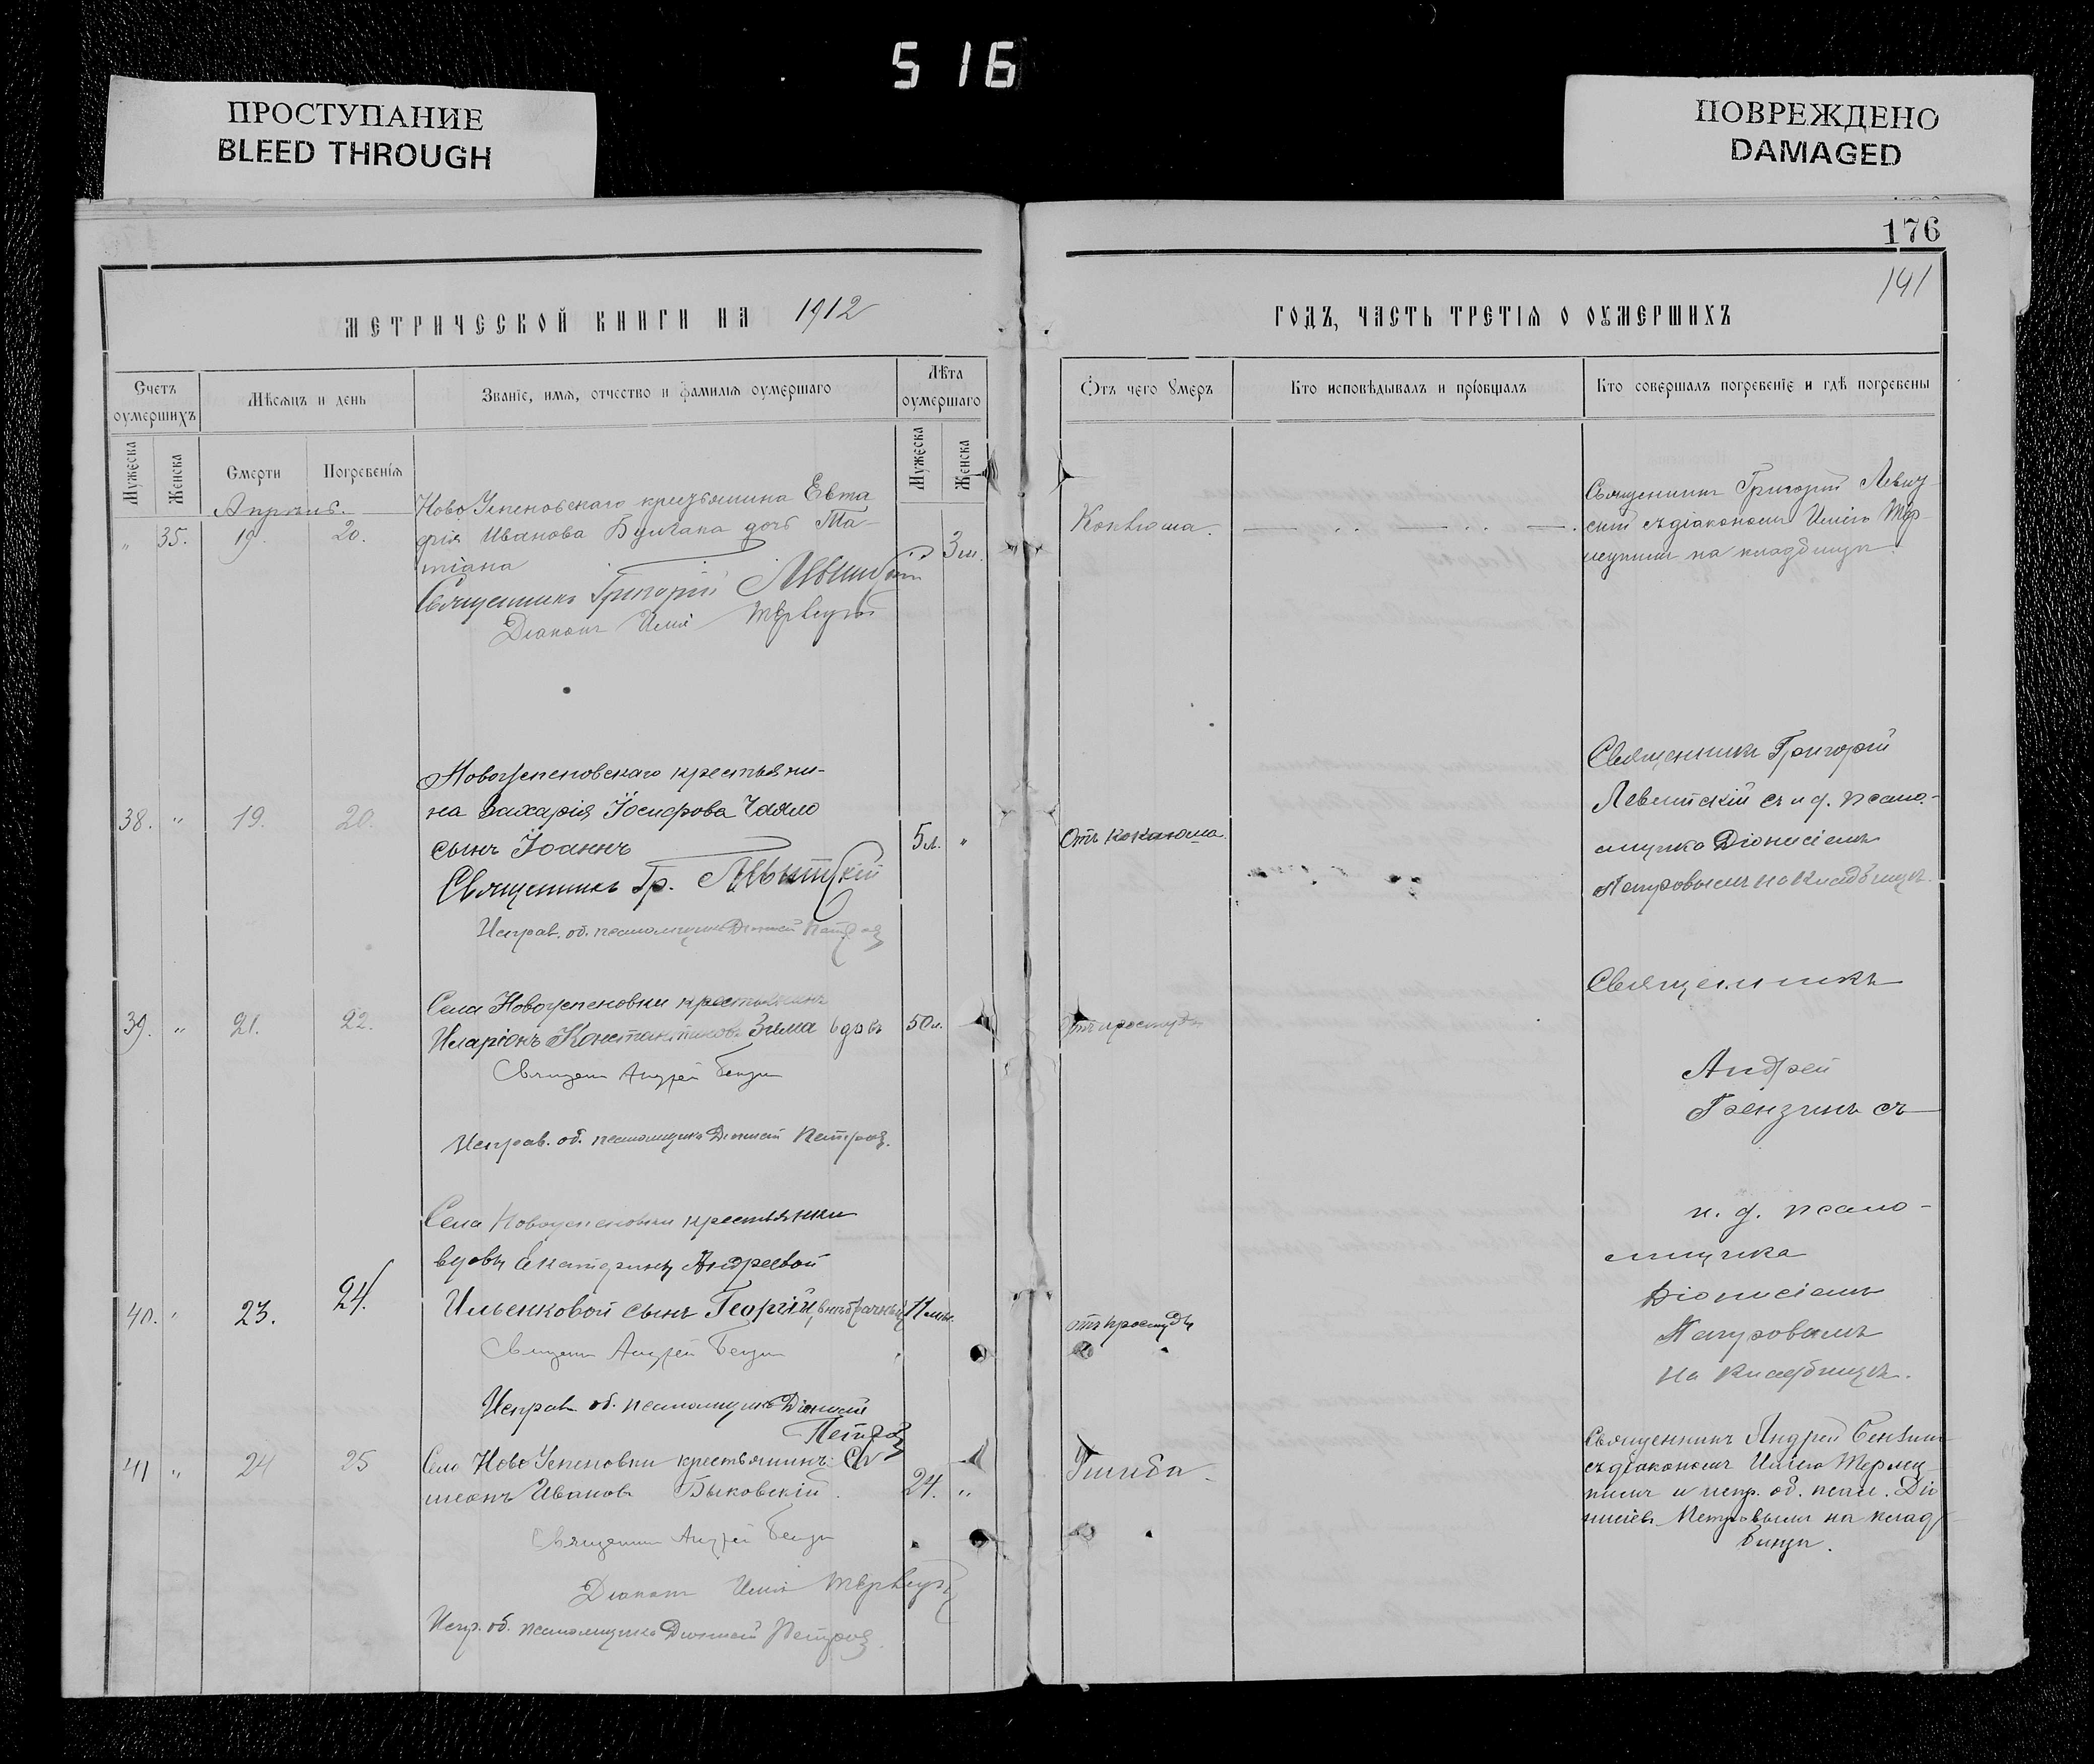 516
ПРОСТУПАНИЕ
BLEED THROUGH
ПОВРЕЖДЕНО
DAMAGED
176
141
МЕТРИЧЕСКОЙ КНИГИ НА 1912
ГОДЪ, ЧАСТЬ ТРЕТІЯ О ОУМЕРШИХЪ
Счетъ оумершихъ
Мѣсяцъ и день
Званіе, имя, отчество и фамилія оумершаго
Лѣта оумершаго
Отъ чего умеръ
Кто исповѣдывалъ и пріобщалъ
Кто совершалъ погребеніе и гдѣ погребены
Мужеска
Женска
Смерти
Погребенія
Мужеска
Женска
Апрѣль.
НовоУспеновскаго крестьянина Евта
" 35. 19. 20.
фія Иванова Булгака дочь Та-
тіана
3 м.
Священникъ Григорій Левитскій
Діаконъ Илія
Коклюша.
Священникъ Григорій Левит
скій съ діакономъ Иліею
на кладбищѣ.
38. " 19. 20.
Новоуспеновскаго крестьяни-
на Захарія Іосифова Чаяло
сынъ Іоаннъ
5 л. "
Священникъ Гр. Левитскій
Исправ. об. псаломщика Діонисій Петровъ
Отъ коклюша
Священникъ Григорій
Левитскій съ и. д. псало-
мщика Діонисіемъ
Петровымъ на кладбищѣ.
39. " 21. 22.
Села Новоуспеновки крестьянинъ
Иларіонъ Константиновъ Зима вдовъ
50 л.
Священ Андрей
Исправ. об. псаломщика Діонисій Петровъ.
Отъ простуды
Священникъ
Андрей
съ
и. д. псало-
мщика
Діонисіемъ
Петровымъ
на кладбищѣ.
40. " 23. 24.
Села Новоуспеновки крестьянки
вдовы Екатерины Андреевой
Ильенковой сынъ Георгій, внѣбрачный
Священ Андрей
Исправ об. псаломщика Діонисій
Петровъ
отъ простуды
41 " 24 25
Села НовоУспеновки крестьянинъ Си
меонъ Иванов Быковскій.
24. "
Священник Андрей
Діаконъ Илія
Испр. об. псаломщика Діонисій Петровъ.
Ушиба.
Священникъ Андрей
съ діакономъ Иліею
и испр. об. псал. Діо
нисіем Петровымъ на клад
бищѣ.